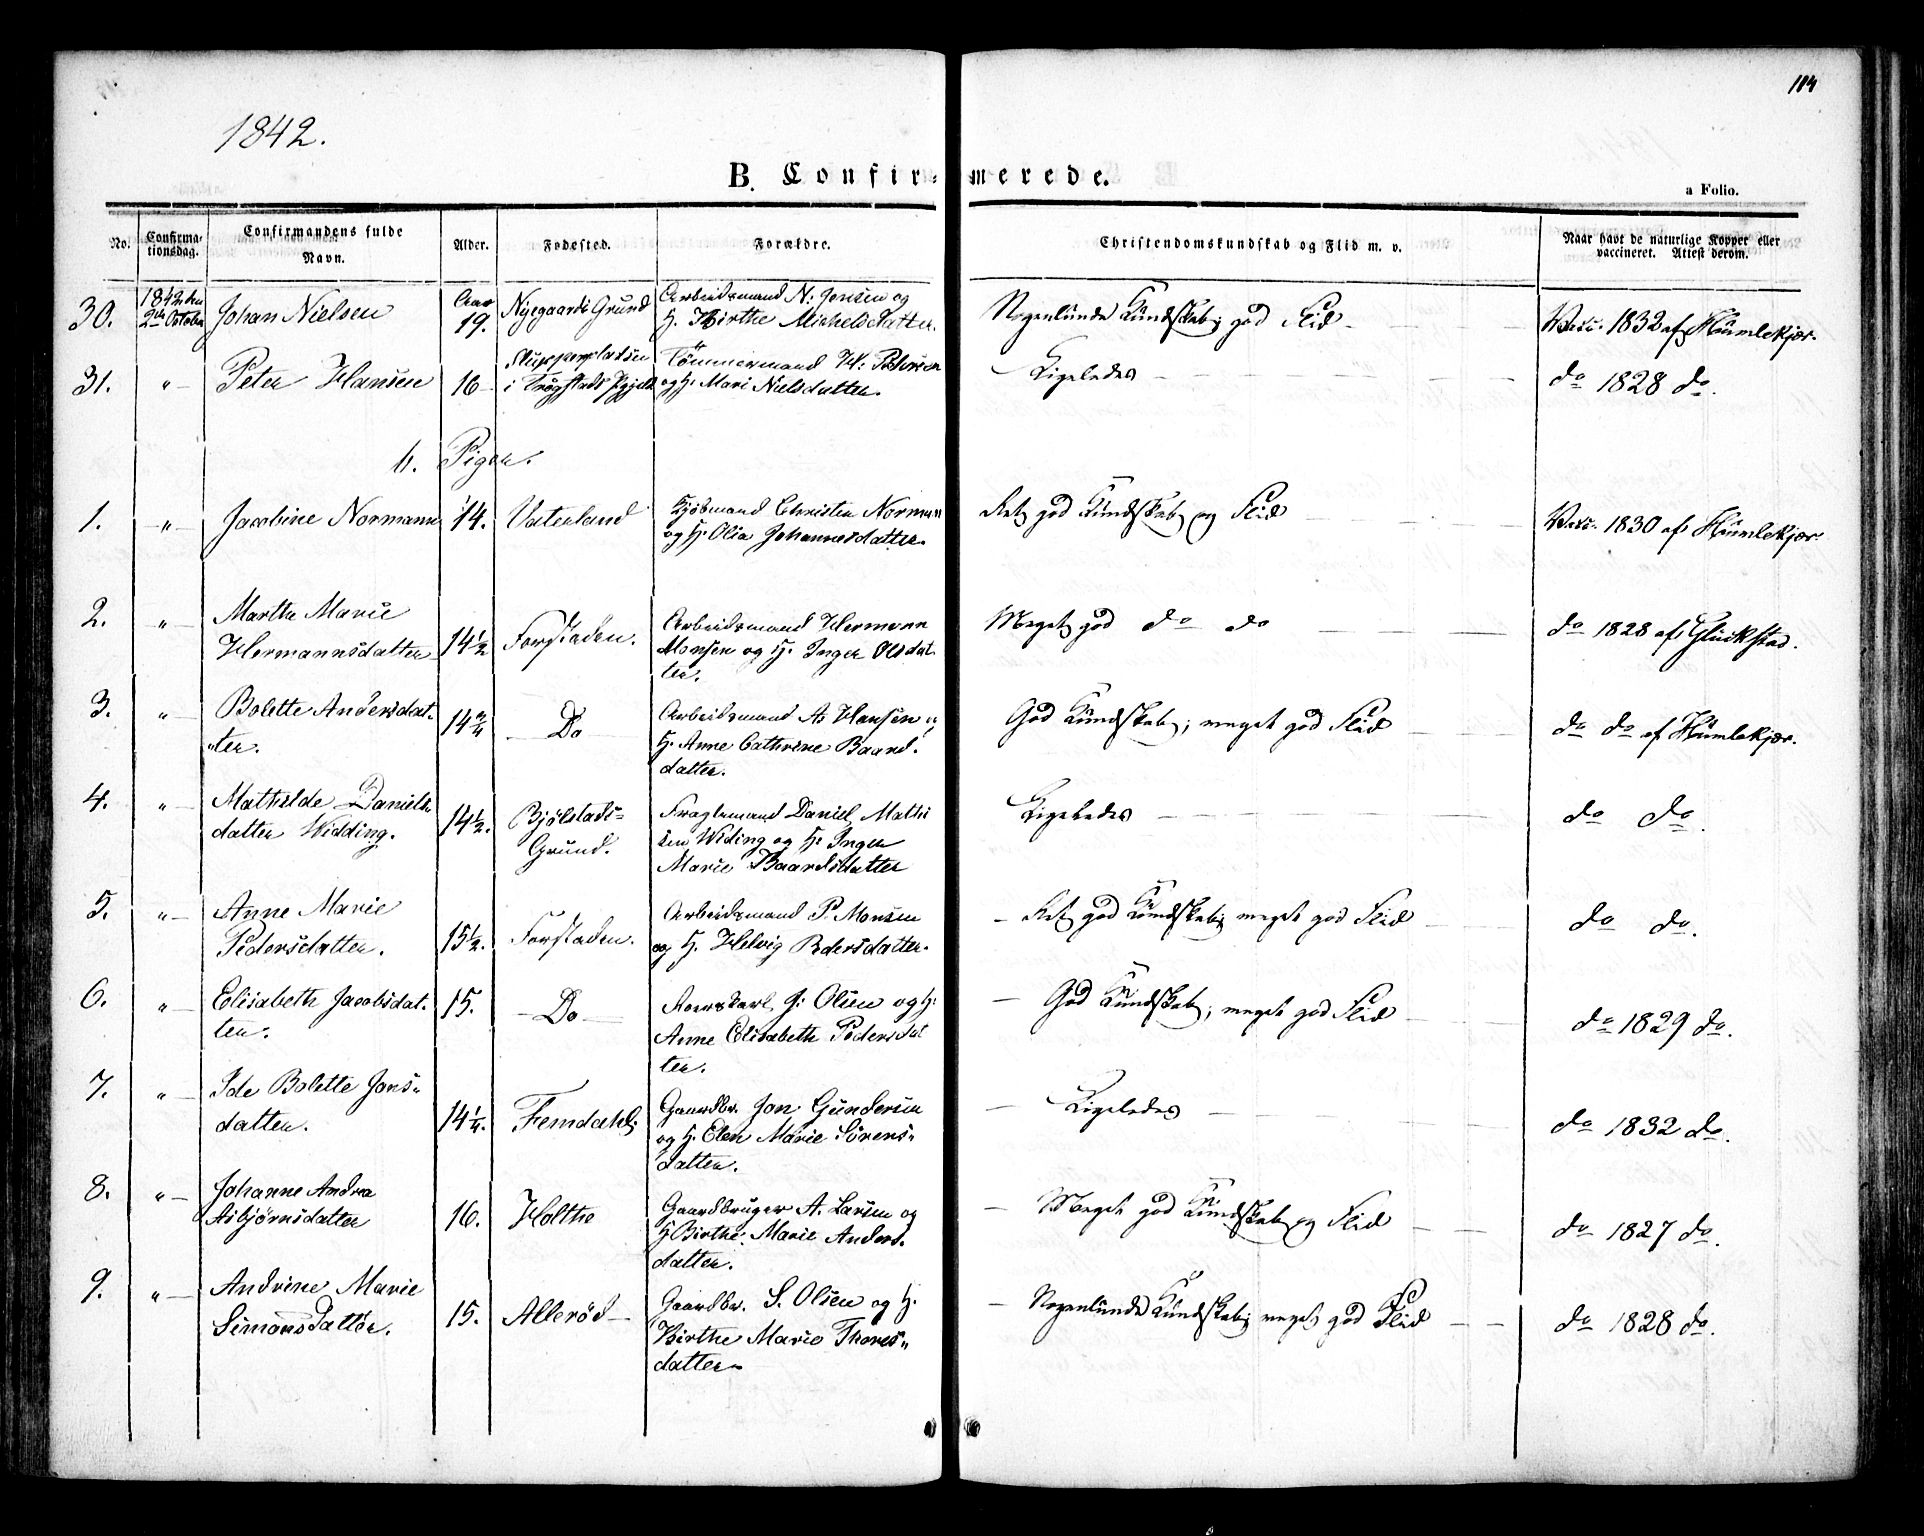 114
1842.
B. Confirmerede.
a Folio.
No. Confirmationsdag. Confirmandens fulde Navn. Alder. Fødested. Forældre. Christendomskundskab og Flid m. v. Naar havt de naturlige Kopper eller vaccineret. Attest derom.
30. 1842 den 2den October Johan Nielsen Aar 19. Nyegaards Grund Arbeidsmand N: Jensen og
H. Birthe Michelsdatter. Nogenlunde Kundskab; god Flid Vacc. 1832 af Humlekjær.
31. " Peter Hansen 16 i Trøgstads Tømmermand H: Pedersen
og H. Mari Nielsdatter. Ligeledes do 1828 do.
b. Piger.
1. " Jacobine Normann 14. Vaterland Christen Normann
og H. Olia Johannesdatter. Ret god Kundskab og Flid Vacc. 1830 af Humlekjær.
2. " Marthe Marie
Hermannsdatter 14½ Forstaden. Arbeidsmand Hermann
Monsen og H. Inger Olsdat
ter. Meget god do do do 1828 af Glückstad.
3. " Bolette Andersdat-
ter. 14¾ Do Arbeidsmand A. Hansen og
H. Anne Cathrine Baard-
datter. God Kundskab; meget god Flid do do af Humlekjær.
4. " Mathilde Daniels-
datter Widding. 14½. Bjølstads-
Grund. Daniel Mathi
sen Widing og H. Inger
Marie Baardsdatter Ligeledes do do.
5. " Anne Marie
Pedersdatter. 15½. Forstaden. Arbeidsmand P. Monsen
og H. Helvig Pedersdatter. Ret god Kundskab; meget god Flid do do.
6. " Elisabeth Jacobsdat-
ter. 15. Do J: Olsen og H.
Anne Elisabeth Pedersdat
ter. God Kundskab; meget god Flid do 1829 do.
7. " Ide Bolette Jons-
datter. 14¼. Femdahl Gaardbr. Jon Gundersen
og H. Elen Marie Sørens-
datter. Ligeledes do 1832 do.
8. " Johanne Andrea
Asbjørnsdatter 16. Holthe Gaardbruger A. Larsen og
H Birthe Marie Anders-
datter. Meget god Kundskab og Flid do 1827 do.
9. " Andrine Marie
Simonsdatter. 15. Allerød Gaardbr. S. Olsen og H.
Birthe Marie Thores-
datter. Nogenlunde Kundskab; meget god Flid do 1828 do.